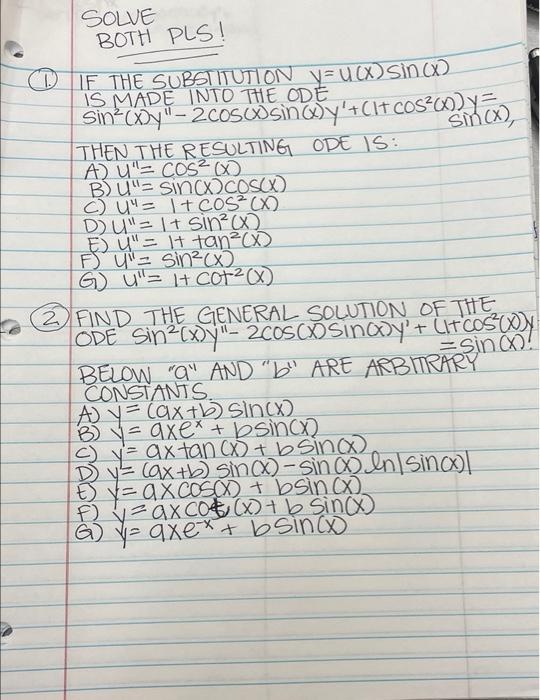 SOLVE
BOTH PLS!
① IF THE SUBSTITUTION y=u(x)sin(x)
IS MADE INTO THE ODE
sin²(x)y"-2cos(x)sin(x)y'+(1+cos²(x))y=
sin(x),
THEN THE RESULTING ODE IS:
A) u"= cos²(x)
B) u"= sin(x)cos(x)
C) u"= 1+cos²(x)
D) u"= 1+sin²(x)
E) u"= 1+tan²(x)
F) u"= sin²(x)
G) u"= 1+cot²(x)
② FIND THE GENERAL SOLUTION OF THE
ODE sin²(x)y"-2cos(x)sin(x)y'+(1+cos²(x))y
=sin(x)!
BELOW "a" AND "b" ARE ARBITRARY
CONSTANTS.
A) y=(ax+b)sin(x)
B) y= axeˣ+bsin(x)
C) y= axtan(x)+bsin(x)
D) y=(ax+b)sin(x)-sin(x)ln|sin(x)|
E) y=axcos(x)+bsin(x)
F) y=axcot(x)+bsin(x)
G) y=axe⁻ˣ+bsin(x)